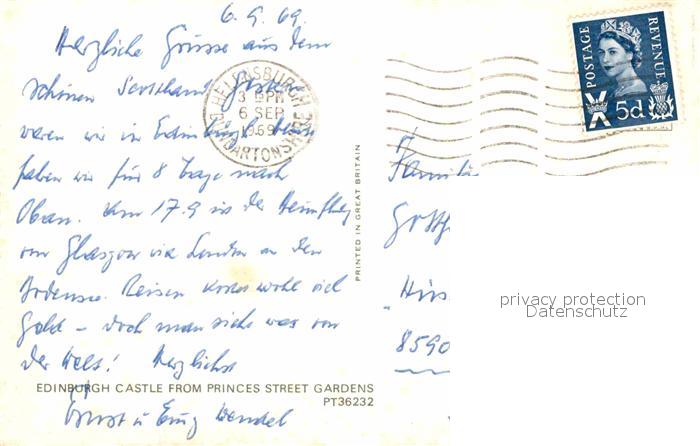 6.9.69.
Herzliche Grüsse aus dem
schönen Scottland. Gestern
waren wir in Edinburgh, heute
fahren wir für 8 Tage nach
Oban. Am 17.9 ist der Heimflug
von Glasgow via London an den
Bodensee. Reisen kostet wohl viel
Geld – doch man sieht was von
der Welt! Herzlichst
EDINBURGH CASTLE FROM PRINCES STREET GARDENS
PT36232
Ernst u
PRINTED IN GREAT BRITAIN
HELENSBURGH
3 PM
6 SEP
1969
DUNBARTONSHIRE
POSTAGE
REVENUE
5d
Famili
8590
privacy protection
Datenschutz